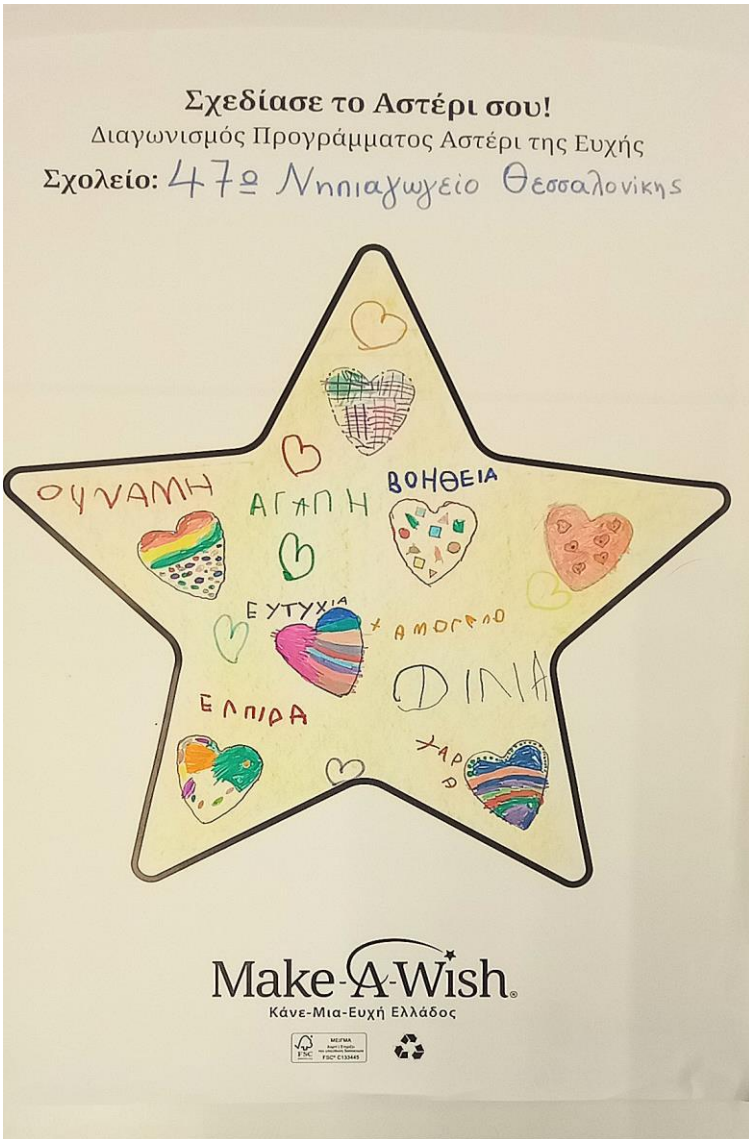 Σχεδίασε το Αστέρι σου!
Διαγωνισμός Προγράμματος Αστέρι της Ευχής
Σχολείο: 47º Νηπιαγωγείο Θεσσαλονίκης
ΟΥΝΑΜΗ
ΑΓΑΠΗ
ΒΟΗΘΕΙΑ
ΕΥΤΥΧΙΑ
ΧΑΜΟΓΕΛΟ
ΦΙΛΙΑ
ΕΛΠΙΔΑ
ΧΑΡ
Α
Make-A-Wish®
Κάνε-Μια-Ευχή Ελλάδος
FSC
ΜΕΙΓΜΑ
FSC® C133445